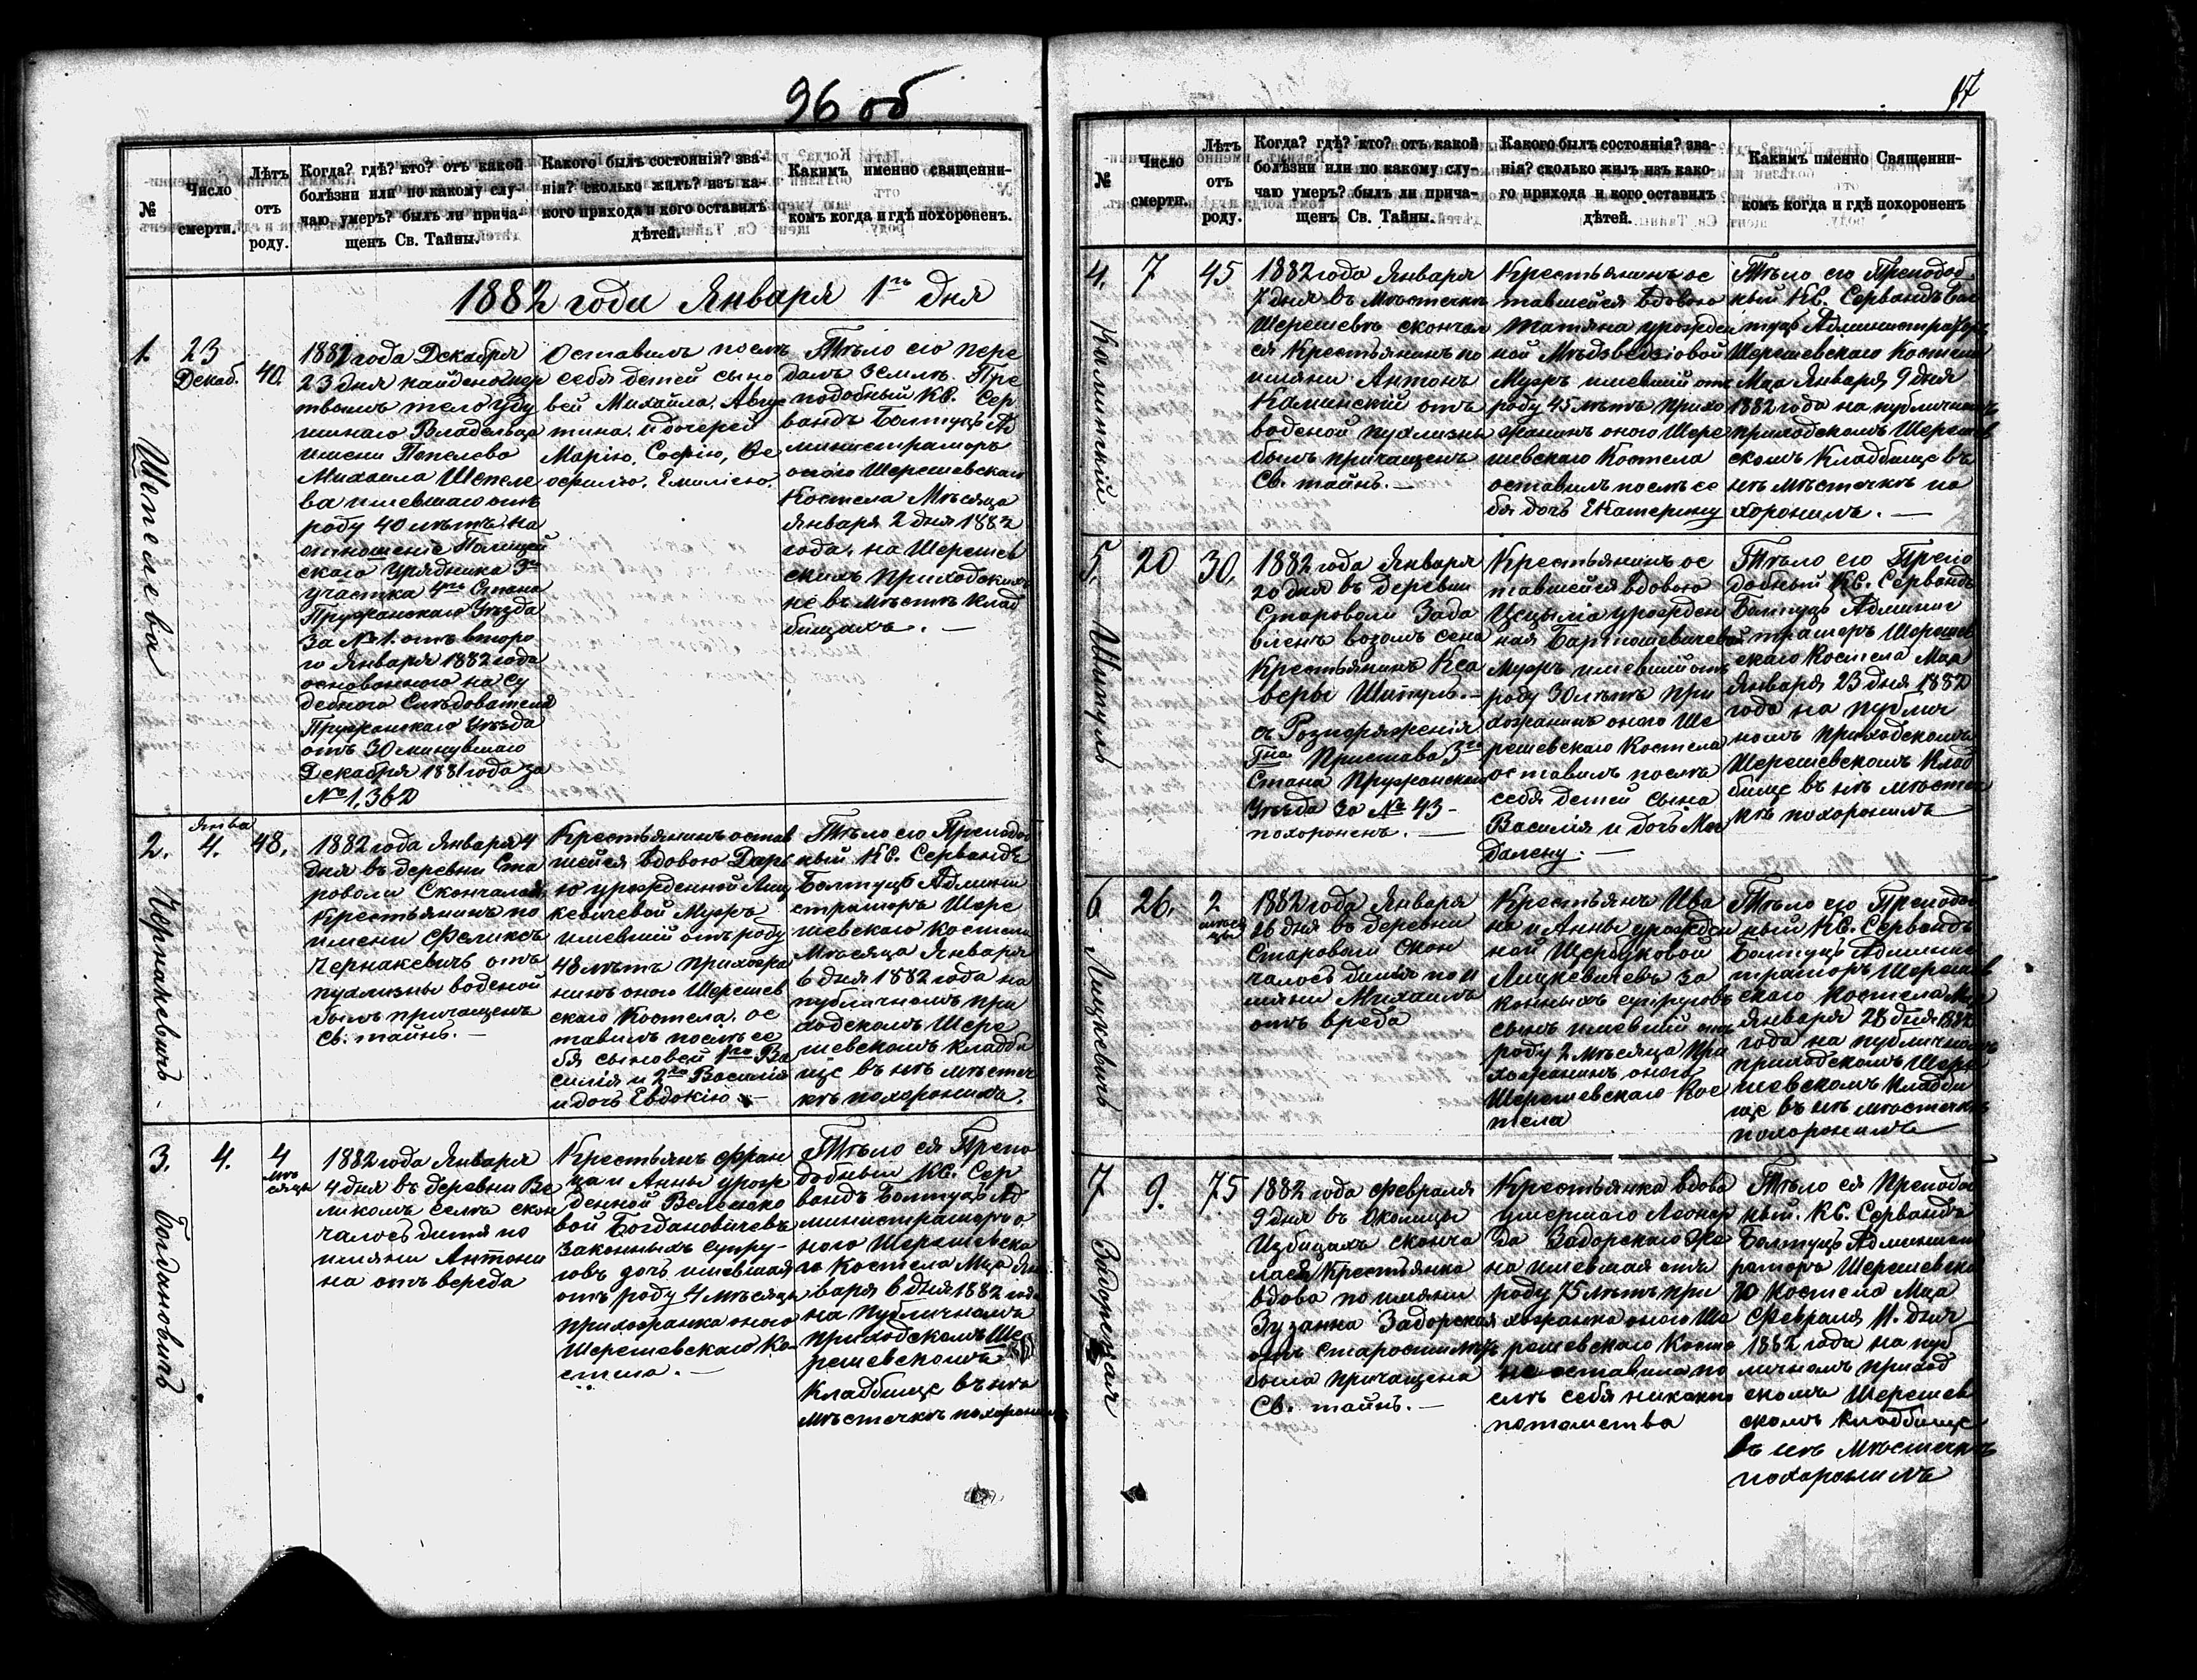 96 об
№
Число
смерти.
Лѣтъ
отъ
роду.
Когда? гдѣ? кто? отъ какой
болѣзни или по какому слу-
чаю умеръ? былъ ли прича-
щенъ Св. Тайны.
Какого былъ состоянія? зва-
нія? сколько жилъ? изъ ка-
кого прихода и кого оставилъ
дѣтей.
Какимъ именно священни-
комъ когда и гдѣ похороненъ.
1882 года Января 1го дня
1.
Шепелева
23
Декаб.
40.
1882 года Декабря
23 дня найдено мер
твымъ тело
шинаго Владельца
имени Попелево
Михаила Шепеле
ва имевшаго отъ
роду 40 лѣтъ на
отношеніе Полицей
скаго Урядника 3го
участка 4го Стана
Пружанскаго Уѣзда
за № 1. отъ второ
го Января 1882 года
основанного на Су
дебного Слѣдователя
Пружанскаго Уѣзда
отъ 30 минувшаго
Декабря 1881 года за
Оставилъ послѣ
себя детей сыно
вей Михаила, Авгус
тина, и дочерей
Марію, Софію, Ѳе
офилію, Емилію.
Тѣло его пере
далъ землѣ Пре
подобный Кс. Сер
вандъ Болтуць Ад
министраторъ
оного Шерешевскаго
Костела Мѣсяца
Января 2 дня 1882
года, на Шерешев
скихъ приходскихъ
не въ мѣстѣ клад
бищахъ. —
2.
Чернакевичъ
Янва
4.
48.
1882 года Января 4
дня въ деревни Ста
роволи Скончался
Крестьянинъ по
имени Феликсъ
Чернакевичъ отъ
пухлизны водяной
былъ причащенъ
Св. тайнъ. —
Крестьянинъ остав
шейся вдовою Дарь
ю урожденной Лиц
кевичевой Мужъ
имевшій отъ роду
48 лѣтъ прихожа
нинъ оного Шерешев
скаго Костела, ос
тавилъ послѣ се
бя сыновей 1го Ва
силія и 2го Василія
и дочь Евдокію —
Тѣло его Преподоб
ный Кс. Сервандъ
Болтуць Админи
страторъ Шере
шевскаго костела
Мѣсяца Января
6 дня 1882 года на
публичномъ при
ходскомъ Шере
шевскомъ кладби
ще въ нѣ мѣстеч
кѣ похоронилъ.
3.
Богдановичъ
4.
4
мѣ
сяцы
1882 года Января
4 дня въ деревни Ве
ликомъ селѣ скон
чалось дитя по
имяни Антони
на отъ вереда
Крестьянъ Фран
ца и Анны урож
денной Велесеко
вой Богдановичевъ
законныхъ супру-
говъ дочь имевшая
отъ роду 4 мѣсяцы
прихожанка оного
Шерешевскаго Ко-
стела. —
Тѣло ея Препо
добный Кс. Сер
вандъ Болтуць Ад
министраторъ о
ного Шерешевска
го Костела Мца Ян
варя 6 дня 1882 года
на публичномъ
приходскомъ Ше
решевскомъ
Кладбище въ нѣ
мѣстечкѣ похоронилъ
№
Число
смерти.
Лѣтъ
отъ
роду.
Когда? гдѣ? кто? отъ какой
болѣзни или по какому слу-
чаю умеръ? былъ ли прича-
щенъ Св. Тайны.
Какого былъ состоянія? зва-
нія? сколько жилъ изъ како-
го прихода и кого оставилъ
дѣтей.
Какимъ именно Священни-
комъ когда и гдѣ похороненъ
4.
Каминскій
7
45
1882 года Января
7 дня въ Мѣстечкѣ
Шерешевѣ скончал
ся Крестьянинъ по
имяни Антонъ
Каминскій отъ
водяной пухлизны
былъ причащенъ
Св. тайнъ. —
Крестьянинъ ос
тавшейся вдовою
Татяна урожден
ной Мѣдзведзіовой
Мужъ имевшій отъ
роду 45 лѣтъ прихо
жанинъ оного Шере
шевскаго Костела
оставилъ послѣ се
бя дочь Екатерину
Тѣло его Преподоб
ный Кс. Сервандъ Бол
туць Администраторъ
Шерешевскаго Костела
Мца Января 9 дня
1882 года на публичномъ
приходскомъ Шерешев
скомъ Кладбище въ
нѣ мѣстечкѣ по
хоронилъ. —
5.
Шитуль
20
30.
1882 года Января
20 дня въ деревни
Староволи Зада
вленъ возомъ сена
Крестьянинъ Кса
веры Шитуль. —
съ Розпоряженія
Гна Пристава 3го
Стана Пружанскаго
Уѣзда За № 43 —
похороненъ. —
Крестьянинъ ос
тавшейся вдовою
Цецыліа урожден
ная Бартошевичевой
Мужъ имевшій отъ
роду 30 лѣтъ при
хожанинъ оного Ше
решевскаго Костела
оставилъ послѣ
себя детей сына
Василія и дочь Маг
далену. —
Тѣло его Препо
добный Кс. Сервандъ
Болтуць Админис
траторъ Шерешев
скаго Костела Мца
Января 23 дня 1882
года на публич
номъ приходскомъ
Шерешевскомъ Клад
бище въ нѣ мѣстеч
кѣ похоронилъ
6
Лицкевичъ
26.
2
мѣся
цы
1882 года Января
26 дня въ деревни
Староволи Скон
чалось дитя по и
мяни Михаилъ
отъ вреда
Крестьянъ Ива
на и Анны урожден
ной Щербуковой
Лицкевичевъ за
конныхъ супруговъ
сынъ имевшій отъ
роду 2 мѣсяца при
хожанинъ оного
Шерешевскаго Кос
тела
Тѣло его Преподоб
ный Кс. Сервандъ
Болтуць Админис
траторъ Шерешев
скаго Костела Мца
Января 28 дня 1882
года на публичномъ
приходскомъ Шере
шевскомъ Кладби
ще въ нѣ мѣстечкѣ
похоронилъ
7
Задорская
9.
75
1882 года Февраля
9 дня въ Околицы
Избицахъ сконча
лася Крестьянка
вдова по имяни
Зузанна Задорская
отъ старости лѣтъ
была причащена
Св. тайнъ. —
Крестьянка вдова
умершаго Леонар
да Задорскаго Же
на имевшая отъ
роду 75 лѣтъ при
хожанка оного Ше
решевскаго Косте
не оставила по
слѣ себя никакого
потомства
Тѣло ея Преподоб
ный. Кс. Сервандъ
Болтуць Админист
раторъ Шерешевска
го Костела Мца
Февраля 11. дня
1882 года на пуб
личномъ приход
скомъ Шерешев
скомъ кладбище
въ нѣ мѣстечкѣ
похоронилъ